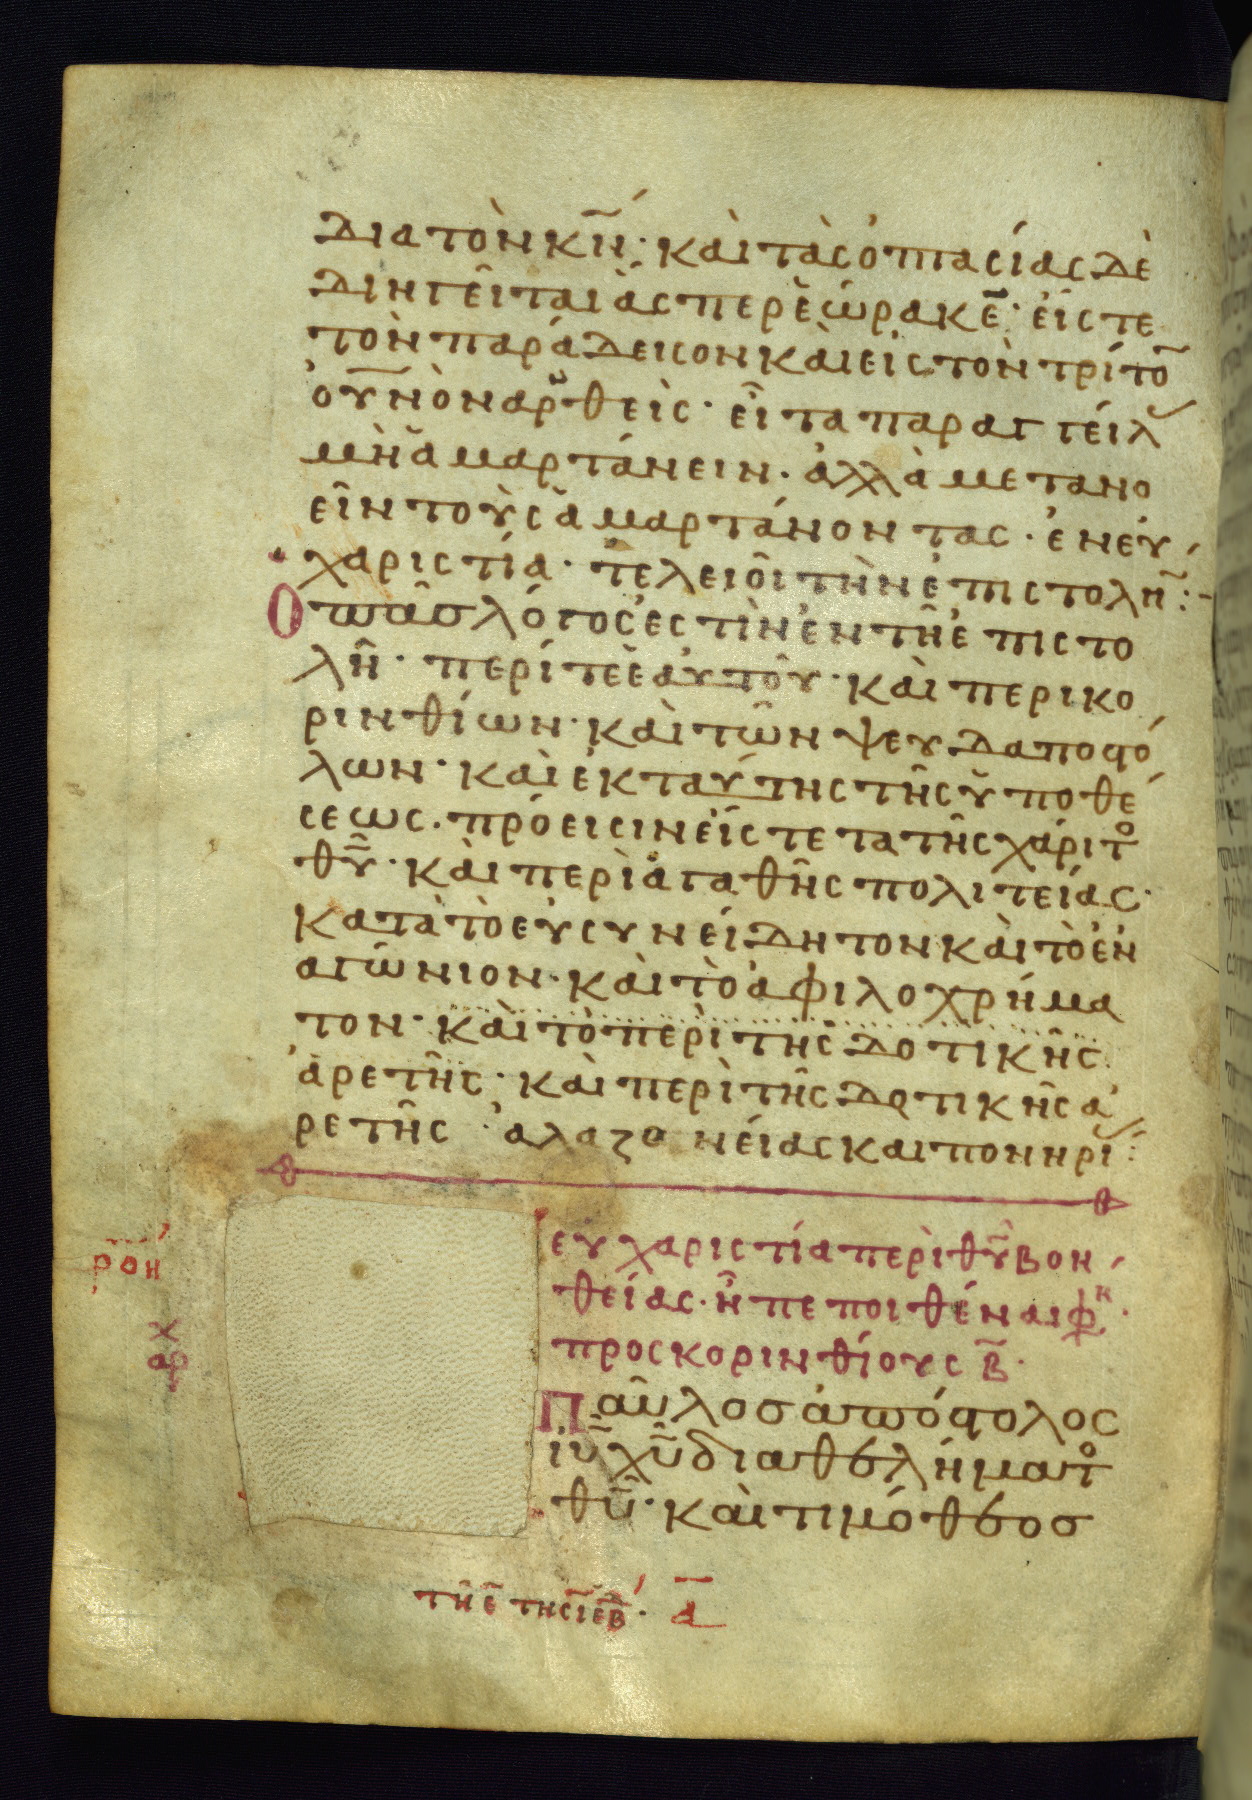 διατὸν κν̅· καὶ τὰς ὀπτασίας δὲ
διηγεῖται ἁς περ ἑώρακε̅· εἴς τε
τὸν παράδεισον καὶ εἰς τὸν τρίτο̅
οὐ̅νὸν ἁρθεὶς· εἶτα παραγγείλ
μὴ ἁμαρτάνειν· ἀλλὰ μετανο
εῖν τοὺς ἁμαρτάνοντας· ἐν εὐ
χαριστία· τελειοῖ τὴν ἐπιστολη̅:
Ὁ πᾶσ λόγος ἐστὶν ἐν τῆ ἐπιστο
λῆ· περί τε ἑαυτοῦ· καὶ περι κο
ρινθίων· καὶ τῶν ψευδαποϛό
λων· καὶ ἐκ ταύτης τῆς ὑποθέ
σεως· πρόεισιν εἴς τε τα τῆς χάριτο
θῦ· καὶ περὶ ἀγαθῆς πολιτείας·
κατὰ τὸ εὐσυνείδητον καὶ τὸ ἐν
αγώνιον· καὶ τὸ ἀφιλοχρήμα
τον· καὶ τὸ περὶ τῆς δοτικῆς
ἀρετῆς· καὶ περὶ τῆς δοτικῆς ἀ
ρετῆς· ἀλαζονείας και πονηρί:
εὐχαριστία περὶ θῦ βοη
θείας· ἦ πεποιθέναι φη·
προς κορινθίους β̅·
ρ̅ο̅η
αρχ
Παῦλοσ ἀπόϛολος
ἰῦ χῦ διὰ θελήματο
θῦ· καὶ τιμόθεοσ
τῆ ε̅ τησ ιε̅ β̅· α̅